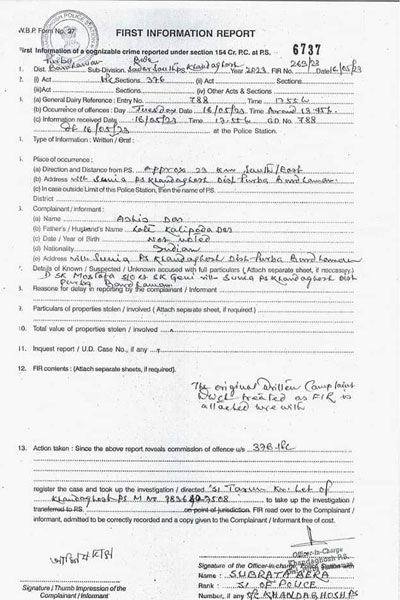 W.B.P. Form No. 27
FIRST INFORMATION REPORT
First Information of a cognizable crime reported under section 154 Cr. P.C. at P.S. 6737
Purba 263/23
1. Dist. Bardhaman Sub-Division. Sadar South PS Khandaghosh Year 2023 FIR No. Date 16/05/23
2. (i) Act IPC Sections 376 (ii) Act Sections
(iii) Act Sections (iv) Other Acts & Sections
3. (a) General Dairy Reference : Entry No. 788 Time 17.55
(b) Occurrence of offences : Day Tuesday Date 16/05/23 Time Around 13.45
(c) Information Received Date 16/05/23 Time 17.55 GD No. 788
dt 16/05/23 at the Police Station.
Type of Information : Written / Oral :
Place of occurrence :
(a) Direction and Distance from P.S. Approx 23 km South/East
(b) Address vill- Sunia PS Khandaghosh Dist Purba Bardhaman
(c) In case outside Limit of this Police Station, then the name of P.S.
District
Complainant / Informant :
(a) Name Ashis Das
(b) Father's / Husband's Name Late Kalipada Das
(c) Date / Year of Birth Not noted
(d) Nationality Indian
(e) Address vill- Sunia PS Khandaghosh Dist Purba Bardhaman
Details of Known / Suspected / Unknown accused with full particulars (Attach separate sheet, if necessary)
SK Mostafa S/O SK Goni vill- Sunia PS Khandaghosh Dist
Purba Bardhaman
8. Reasons for delay in reporting by the complainant / Informant
9. Particulars of properties stolen / involved (Attach separate sheet, if required.)
10. Total value of properties stolen / involved
11. Inquest report / U.D. Case No., if any
12. FIR contents : (Attach separate sheets, if required).
The original written Complaint
which treated as FIR is
attached here with
13. Action taken : Since the above report reveals commission of offence u/s 376 IPC
register the case and took up the investigation / directed SI Tarun Kr. Let of
Khandaghosh PS to take up the investigation /
transferred to P.S. on point of jurisdiction. FIR read over to the Complainant /
informant, admitted to be correctly recorded and a copy given to the Complainant / Informant free of cost.
Officer-in-Charge
Khandaghosh P.S.
Signature of the Officer-in-charge, Police Station with
Name : SUBRATA BERA
Rank : SI OF POLICE
Number, if any O/C KHANDAGHOSH PS
Signature / Thumb Impression of the
Complainant / Informant